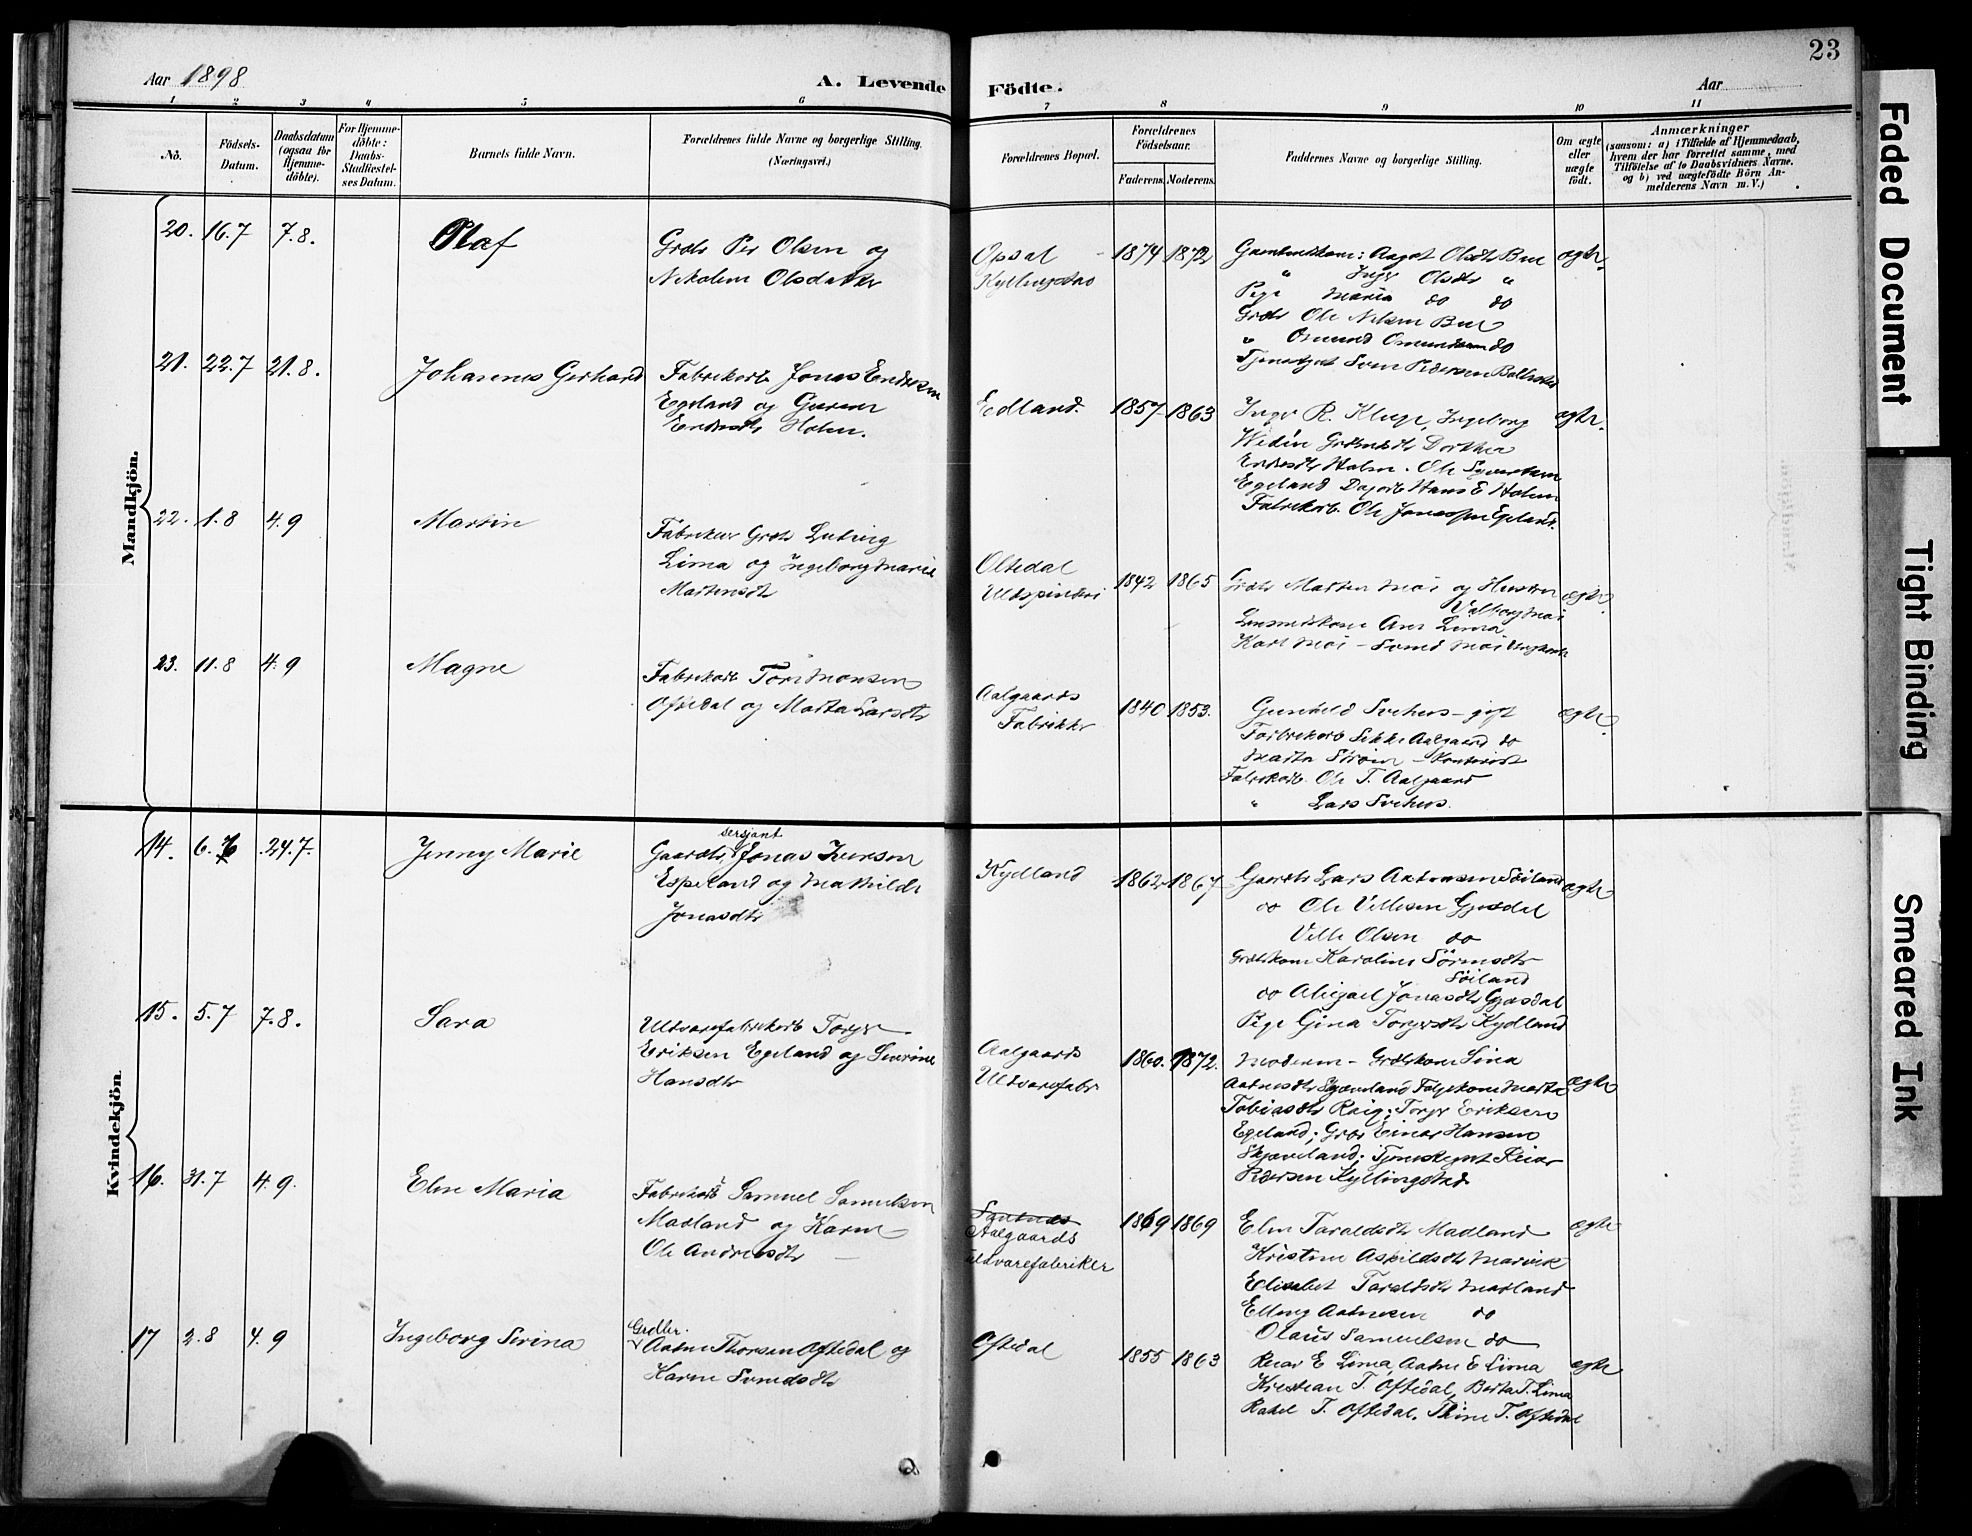 Aar 1898
A. Levende
Födte.
Aar
23
1 2 3 4 5 6 7 8 9 10 11
No.
Födsels-
Datum.
Daabsdatum
(ogsaa for
Hjemme-
döbte).
For Hjemme-
döbte:
Daabs-
Stadfæstel-
ses Datum.
Barnets fulde Navn.
Forældrenes fulde Navne og borgerlige Stilling.
(Næringsvei.)
Forældrenes Bopæl.
Forældrenes
Födselsaar.
Faderens. Moderens.
Faddernes Navne og borgerlige Stilling.
Om ægte
eller
uægte
født.
Anmærkninger
(saasom: a) i Tilfælde af Hjemmedaab,
hvem der har forrettet samme, med
Tilföielse af to Daabsvidners Navne.
og b) ved uægtefödte Börn An-
melderens Navn m. V.)
Mandkjön.
20. 16.7 7.8. Olaf
Grdbr Per Olsen og
Nikoline Olsdatter
Opsal
Kyllingstad
1874 1872
Gaardmandskone: Aagot Olsdtr Bue
" Inger Olsdtr "
Pige Maria do do
Grdbr Ole Nilsen Bue
" Omund Omundsen do
Tjenestegut Sven Pedersen
ægte.
21. 22.7 21.8. Johannes Gerhard
Fabrikarb Jonas Endresen
Egeland og Gurine
Endresdtr Holen.
Edland.
1857. 1863
Inger R. Kluge, Ingeborg
Wedin Dorthea
Endresdtr Holen. Ole Syvertsen
Egeland Dagarb Hans E Holen
Fabrikarb. Ole Jonassen Egeland.
ægte.
22. 1.8 4.9 Martin
Grdbr Ludvig
Lima og Ingeborg Marie
Martensdtr
Oltedal
Uldspinderi
1842 1865
Grdbr Marten Moi og Hustru
Valborg Moi
Ane Lima
Karl Moi - Svend Moi
ægte.
23. 11.8 4.9 Magne
Fabrikarb Tore Monsen
Oftedal og Marta Larsdtr
Aalgaards
Fabrikker
1840 1853.
Gunhild Svehus - gift
Fabrikarb Sikke Aalgaard do
Marta
Fabrikarb. Ole T. Aalgaard
" Lars Svehus.
ægte.
Kvindekjön.
14. 6. 24.7. Jenny Marie
sersjant
Gaardbr, Jonas Iversen
Espeland og Mathilde
Jonasdtr
Kydland
1862 1867
Gaardbr Lars Aadnesen Söiland
do Ole Villesen Gjesdal
Ville Olsen do
Grdbrkone Karoline Sörensdtr
Söiland
do Abigael Jonasdtr Gjesdal
Pige Gina Torgersdtr Kydland
ægte
15. 5.7 7.8. Sara
Uldvarefabrikarb Torger
Eriksen Egeland og Severine
Hansdtr
Aalgaards
Uldvarefabr
1860. 1872.
Moderen - Grdbrkone Sina
Aadnesdtr Skjæveland Marta
Tobiasdtr Raig; Torger Eriksen
Egeland; Grdbr Einar Hansen
Skjæveland; Tjenestegut Reiar
Pedersen Kyllingstad
ægte
16. 31.7 4.9. Elen Maria
Fabrikarb Samuel Samuelsen
Madland og Karen
Ole Andreasdtr
Aalgaards
uldvarefabriker
1869 1869
Elen Taraldsdtr Madland
Kristine Askildsdtr Marvik
Elisabet Taraldsdtr Madland
Elling Aadnesen do
Olaus Samuelsen do
ægte
17 2.8 4.9 Ingeborg Serina
Grdbr.
Aadne Thorsen Oftedal og
Karen Svendsdtr
Oftedal
1855 1863
Reiar E Lima, Aadne E Lima
Kristian T. Oftedal, Berta T. Lima
Rakel T. Oftedal, Thine T. Oftedal
ægte
Faded Document
Tight Binding
Smeared Ink